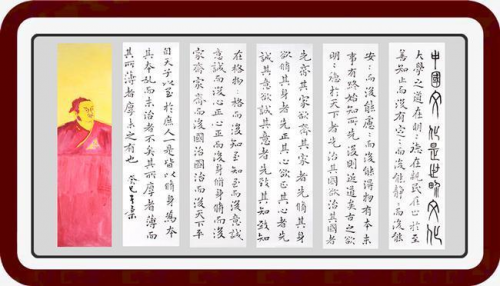 中國文化是世明文化
大學之道在明:德在親民在止於至
善知止而後有定:而後能靜:而後能
安:而後能慮:而後能得物有本末
事有終始知所先後則近道矣古之欲
明:德於天下者先治其國欲治其國者
先齊其家欲齊其家者先脩其身
欲脩其身者先正其心欲正其心者先
誠其意欲誠其意者先致其知致知
在格物:格而後知至知至而後意誠
意誠而後心正心正而後身脩身脩而後
家齊家齊而後國治國治而後天下平
自天子以至於庶人一是皆以脩身為本
其本亂而末治者否矣其所厚者薄而
其所薄者厚未之有也 癸巳